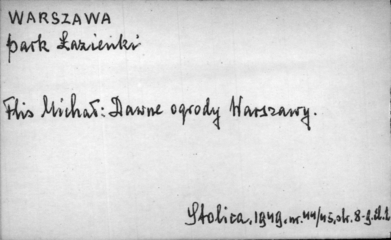 WARSZAWA
park Łazienki
Flis Michał: Dawne ogrody Warszawy.
Stolica, 1949, nr. 44/45, str. 8-9, il. 2